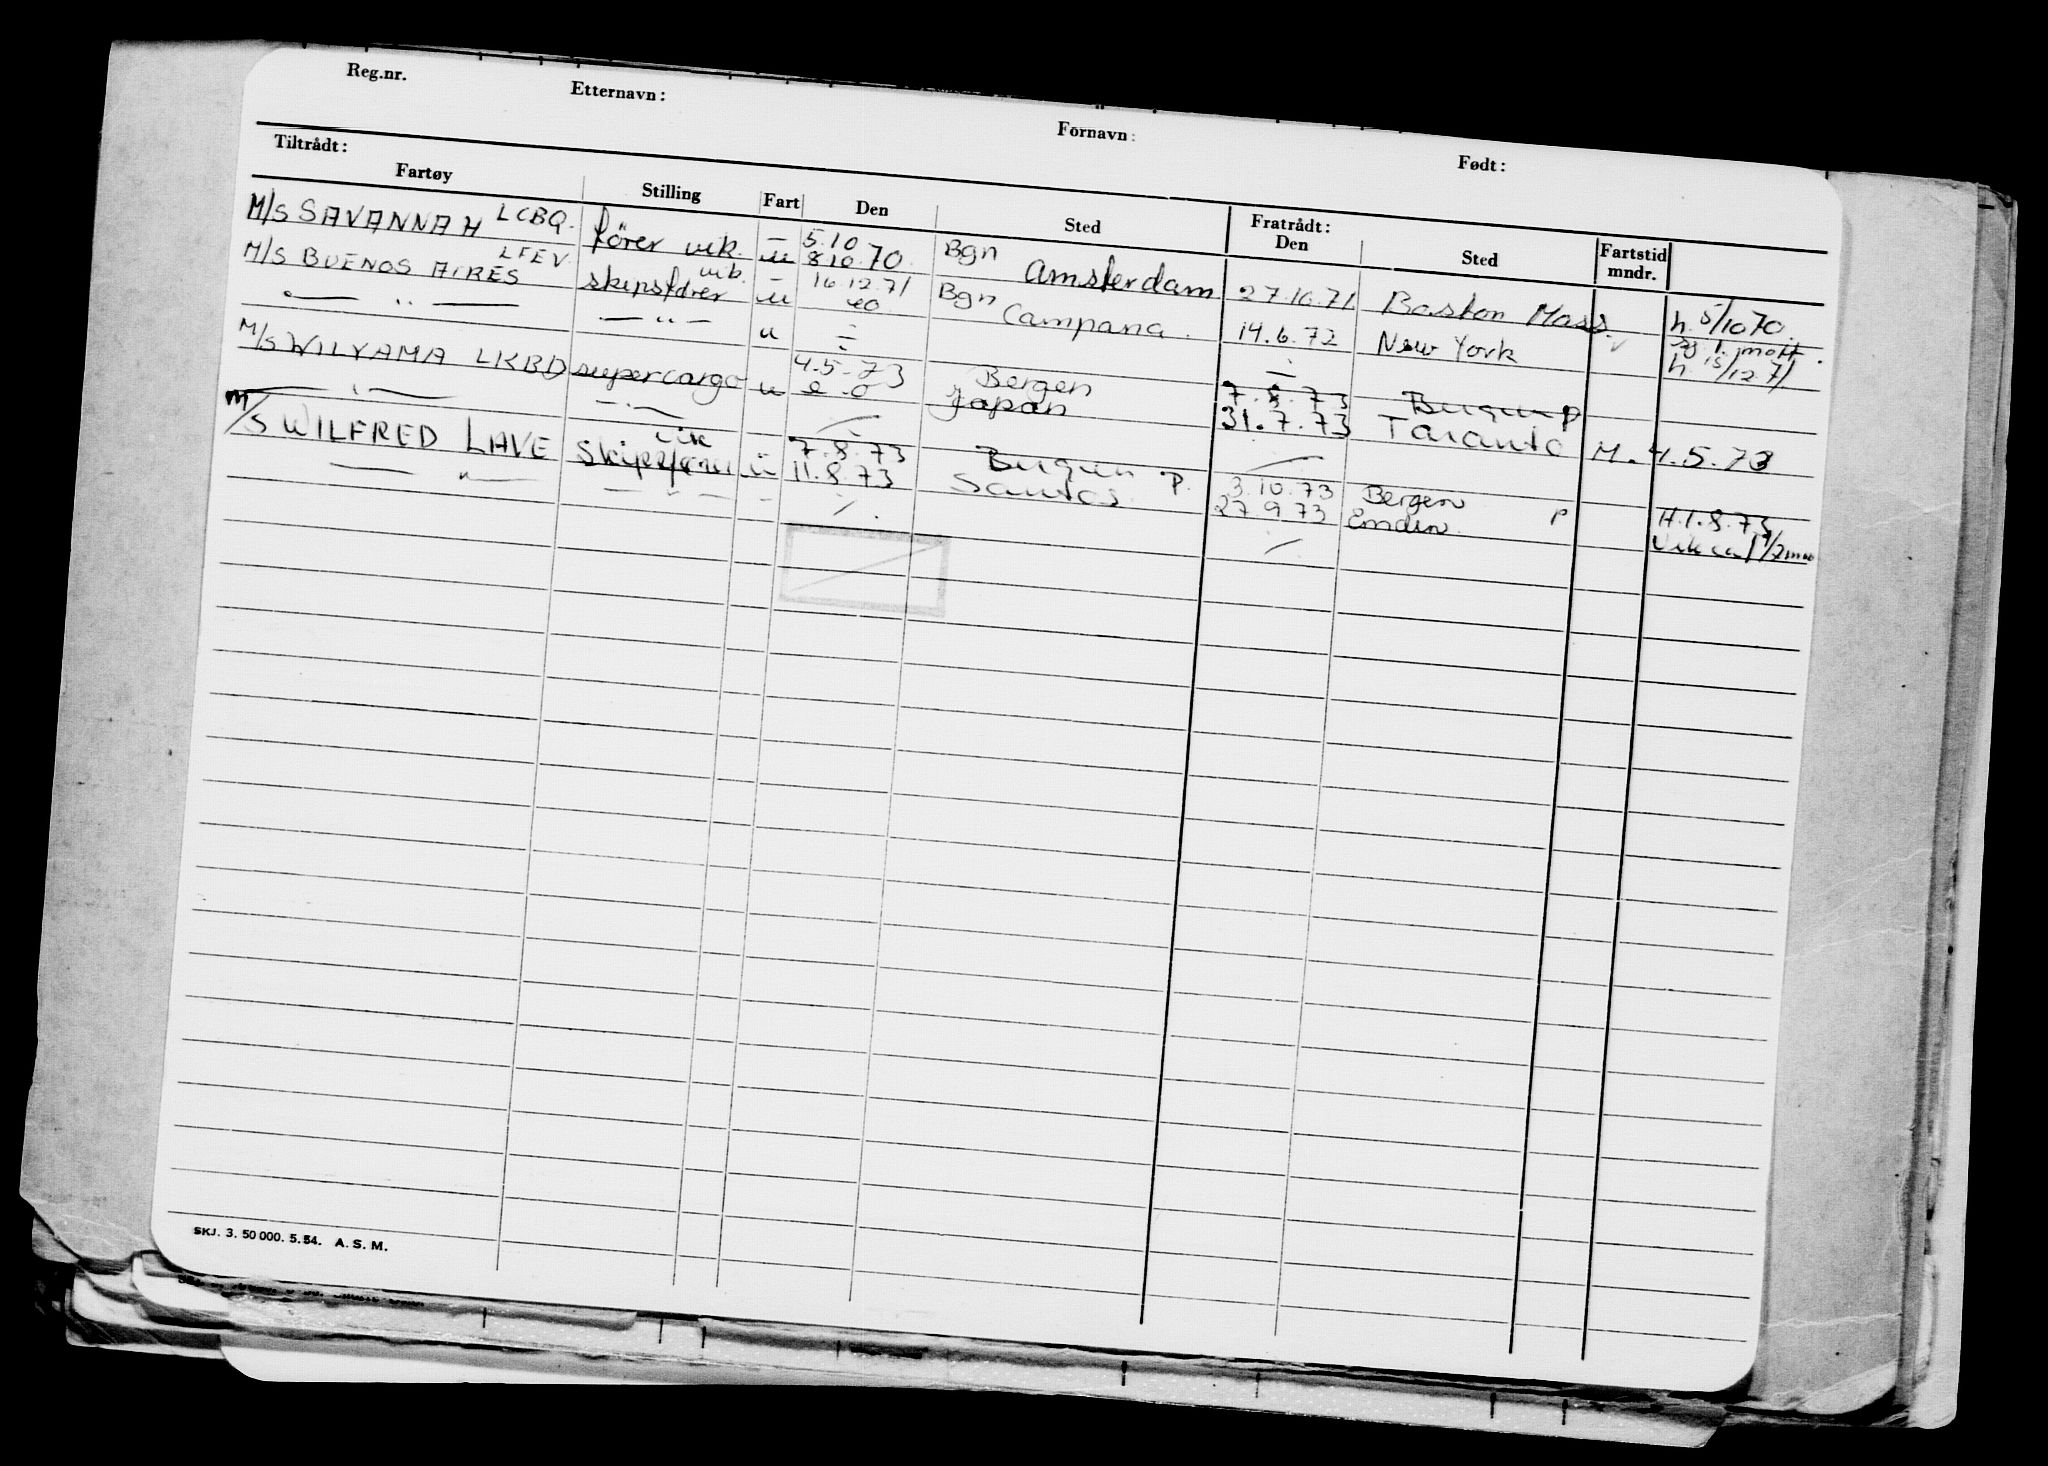 Reg.nr. Etternavn: Fornavn: Født:
Tiltrådt: Fratrådt:
Fartøy Stilling Fart Den Sted Den Sted Fartstid mndr.
M/S SAVANNAH LCBQ. fører vik. – 5.10 Bgn
u 8.10.70. Amsterdam 27.10.71 Boston Mass. h. 5/10 70.
M/S BUENOS AIRES LFEV. skipsfører vik. – 16.12.71 Bgn
— " — u Campana. 14.6.72 New York h. 15/12 71
— " — u
M/S WILYAMA LKBD supercargo 4.5.73 Bergen 7.8.73 Bergen p
— " — u Japan 31.7.73 Taranto M. 4.5.73
M/S WILFRED LAVE skipsfører vik 7.8.73 Bergen P. 3.10.73 Bergen P H.1.8.73
— " — — " — – 11.8.73 Santos. 27.9.73 Emden. Vik ca 1 1/2 mnd
SKJ. 3. 50 000. 5. 54. A. S. M.